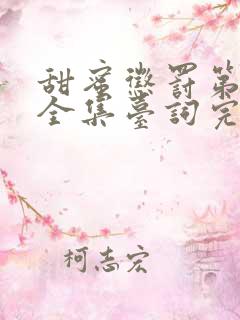 甜蜜懲罰第
全集臺詞完
柯志宏